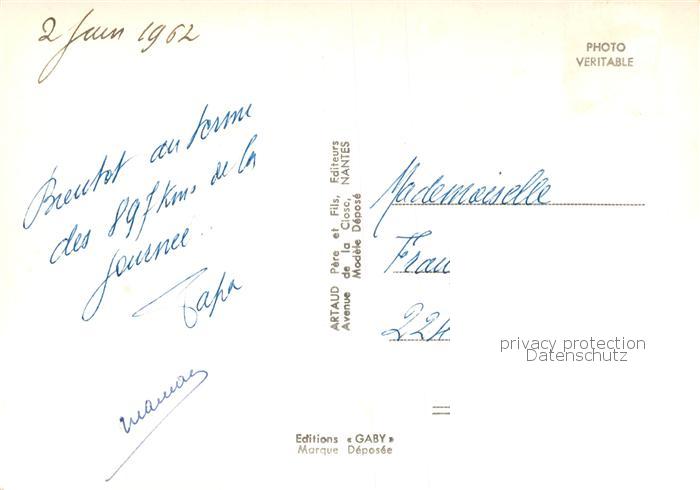 2 Juin 1962
Bientot au terme
des 897 kms de la
journée..
Papa
maman
PHOTO
VERITABLE
ARTAUD Père et Fils, Editeurs
Avenue de la Close, NANTES
Modèle Déposé
Mademoiselle
Fran
224
privacy protection
Datenschutz
Editions « GABY »
Marque Déposée